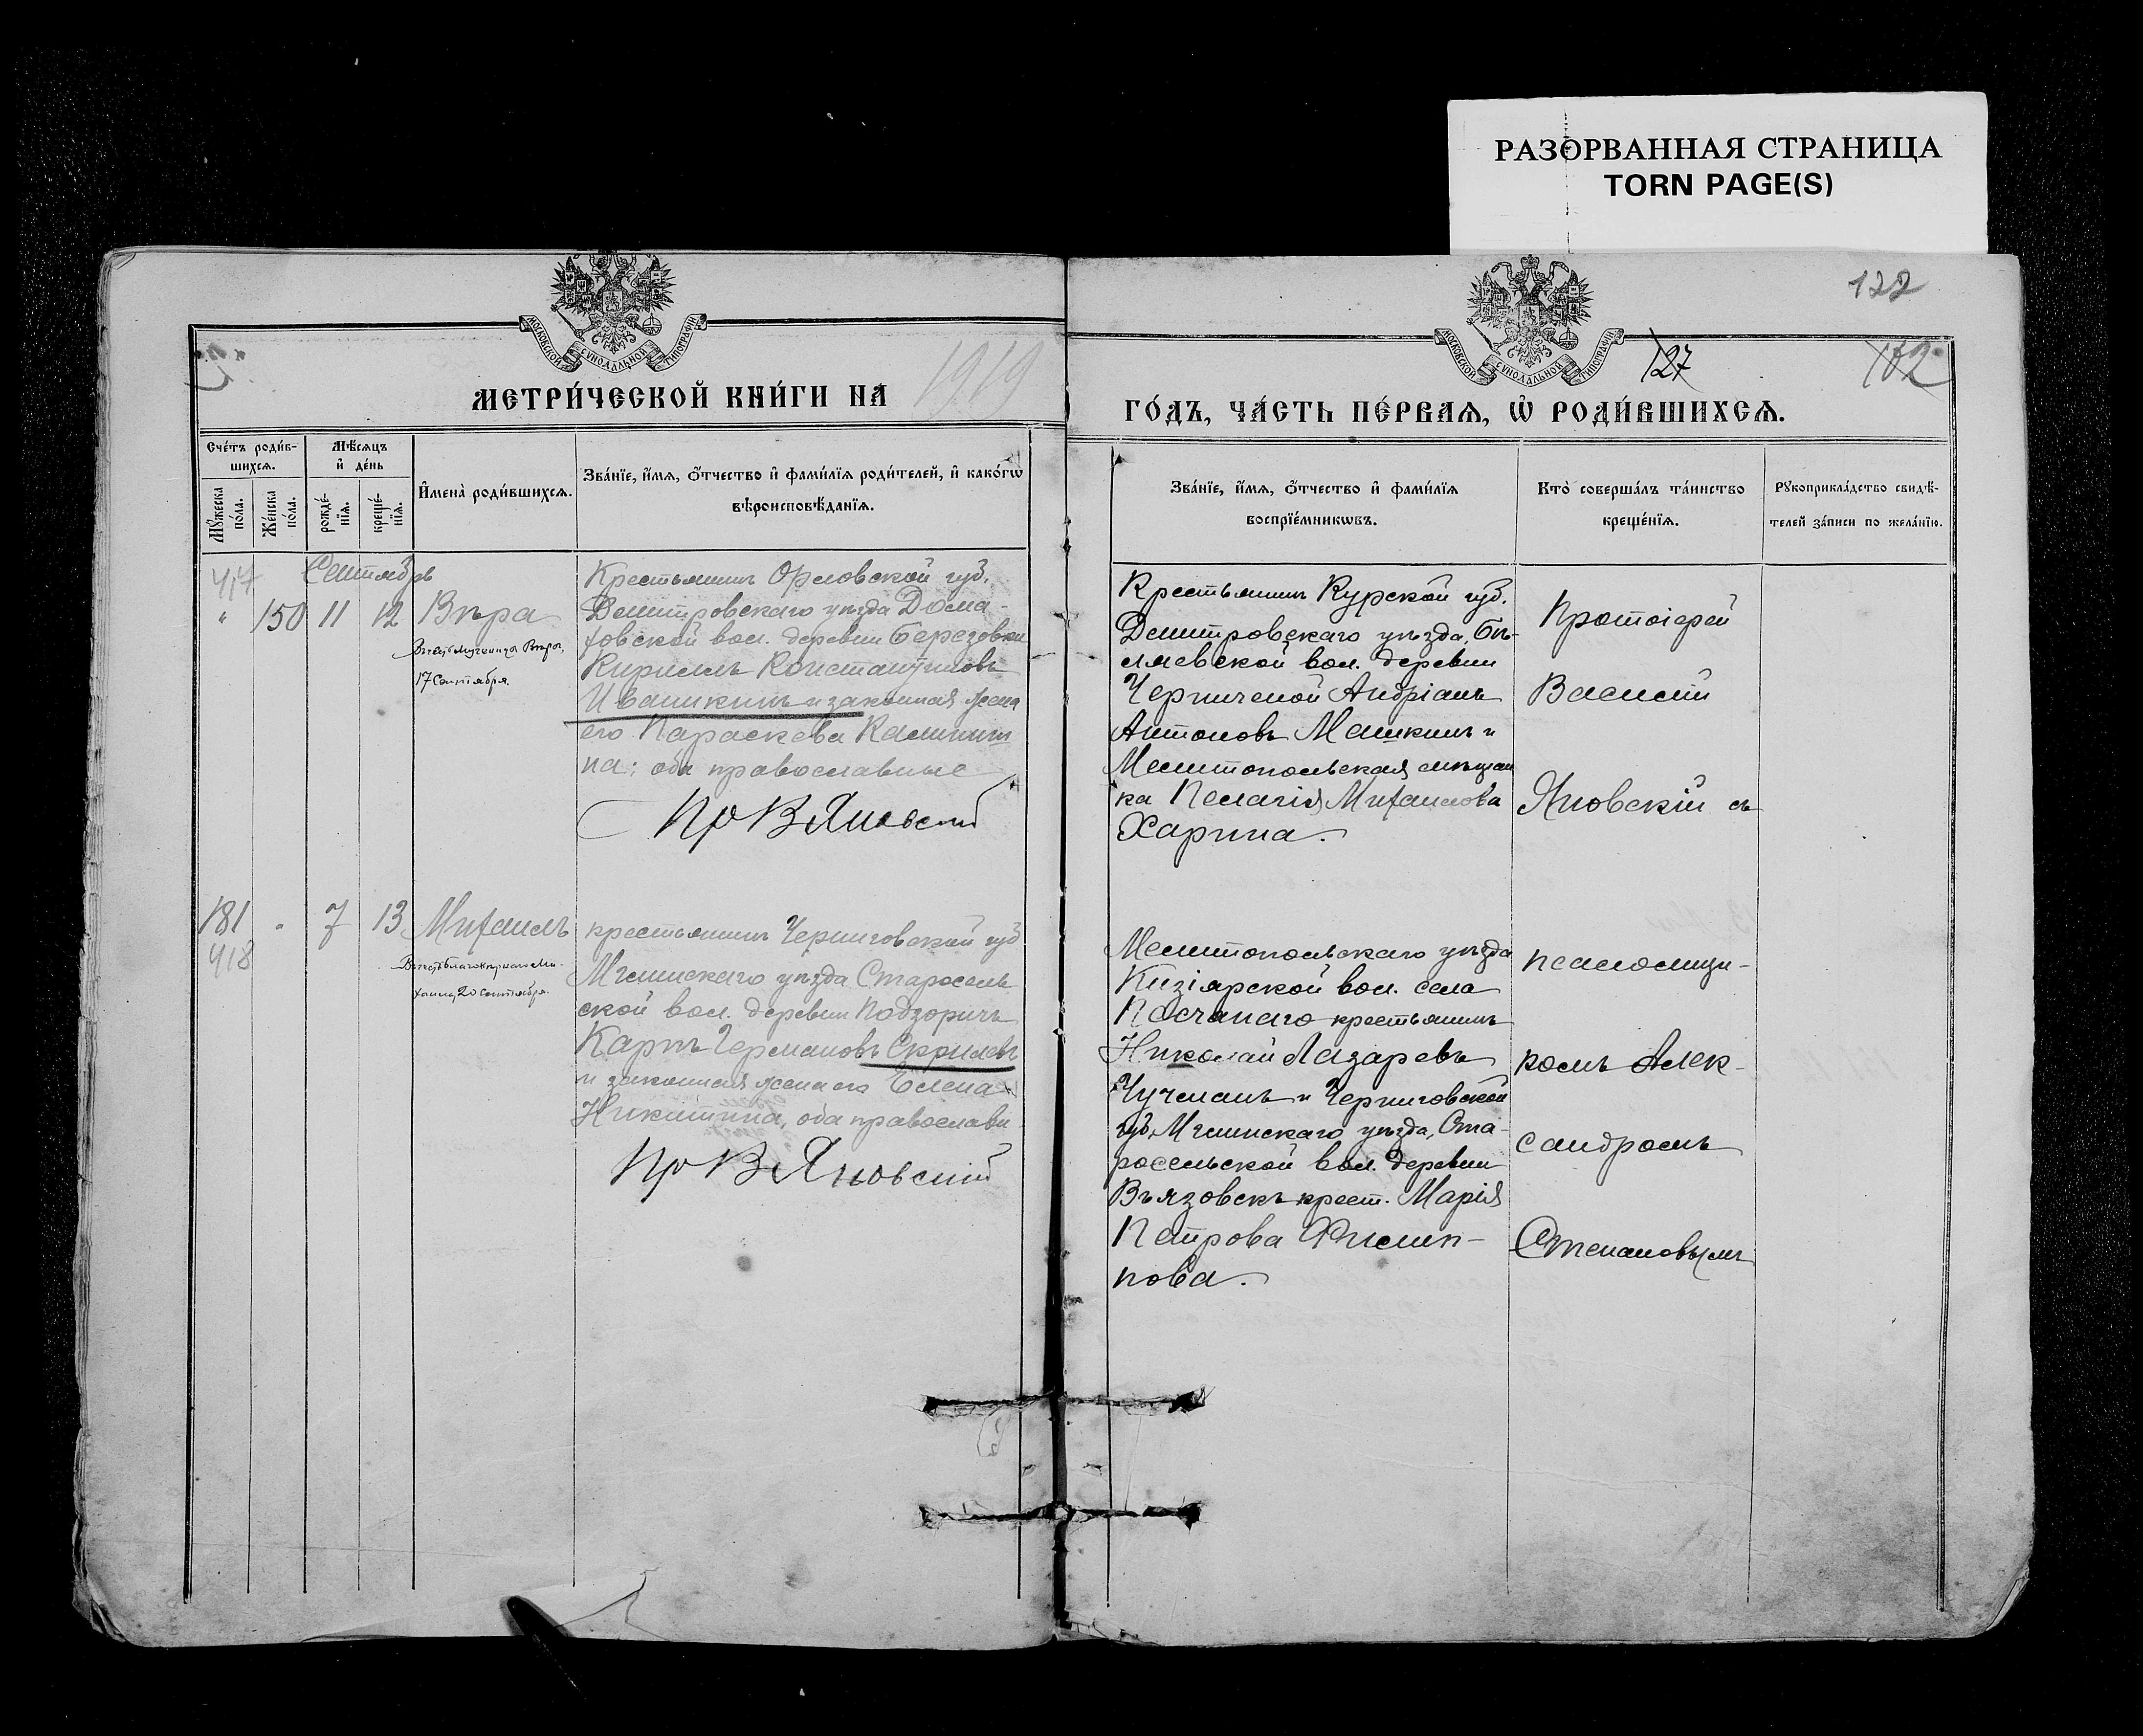 РАЗОРВАННАЯ СТРАНИЦА
TORN PAGE(S)
122
127
102
МОСКОВСКОЙ СУНОДАЛЬНОЙ ТИПОГРАФІИ
МОСКОВСКОЙ СУНОДАЛЬНОЙ ТИПОГРАФІИ
МЕТРИ́ЧЕСКОЙ КНИ́ГИ НА 1919
ГО́ДЪ, ЧА́СТЬ ПЕ́РВАѦ, Ѡ҆ РОДИ́ВШИХСѦ.
Сче́тъ роди́в-
шихсѧ.
Мѣ́сѧцъ
и҆ де́нь
Мꙋ́жеска по́ла.
Же́нска по́ла.
рожде́-
нїѧ.
креще́-
нїѧ.
И҆мена̀ роди́вшихсѧ.
Зва́нїе, и҆́мѧ, ѻ҆́тчество и҆ фами́лїѧ роди́телей, и҆ како́гѡ
вѣроисповѣ́данїѧ.
Зва́нїе, и҆́мѧ, ѻ҆́тчество и҆ фами́лїѧ
воспрїе́мникѡвъ.
Кто̀ соверша́лъ та́инство
креще́нїѧ.
Рꙋкоприкла́дство свидѣ́-
телей за́писи по жела́нїю.
417
Сентябрь
" 150 11 12 Вѣра
Въ честь мученицы Вѣры,
17 Сентября.
Крестьянинъ Орловской губ.
Дмитровскаго уѣзда Дома-
ховской вол. деревни Березовки
Кириллъ Константиновъ
Ивашкинъ и законная жена
его Параскева Калинит
на; оба православные
Пр В Яновский
Крестьянинъ Курской губ.
Дмитровскаго уѣзда, Бѣ-
ляевской вол. деревни
Черниченой Андріанъ
Антоновъ Машкинъ и
Мелитопольская мѣщан
ка Пелагія Михаилова
Харина.
Протоіерей
Василій
Яновскій съ
181 " 7 13 Михаилъ
418
Въ честь благовѣрнаго Ми-
хаила, 20 Сентября.
крестьянинъ Черниговской губ
Мглинскаго уѣзда Старосель
ской вол. деревни Подзоричъ
Карпъ Германовъ Скрилевъ
и законная жена его Елена
Никитина, оба православн
Пр В Яновский
Мелитопольскаго уѣзда
Кизіярской вол. села
Песчанаго крестьянинъ
Николай Лазаревъ
Чучманъ и Черниговской
губ. Мглинскаго уѣзда, Ста-
росельской вол. деревни
Вьязовскъ крест. Марія
Петрова Филип-
пова.
псаломщи-
комъ Алек-
сандромъ
Степановымъ